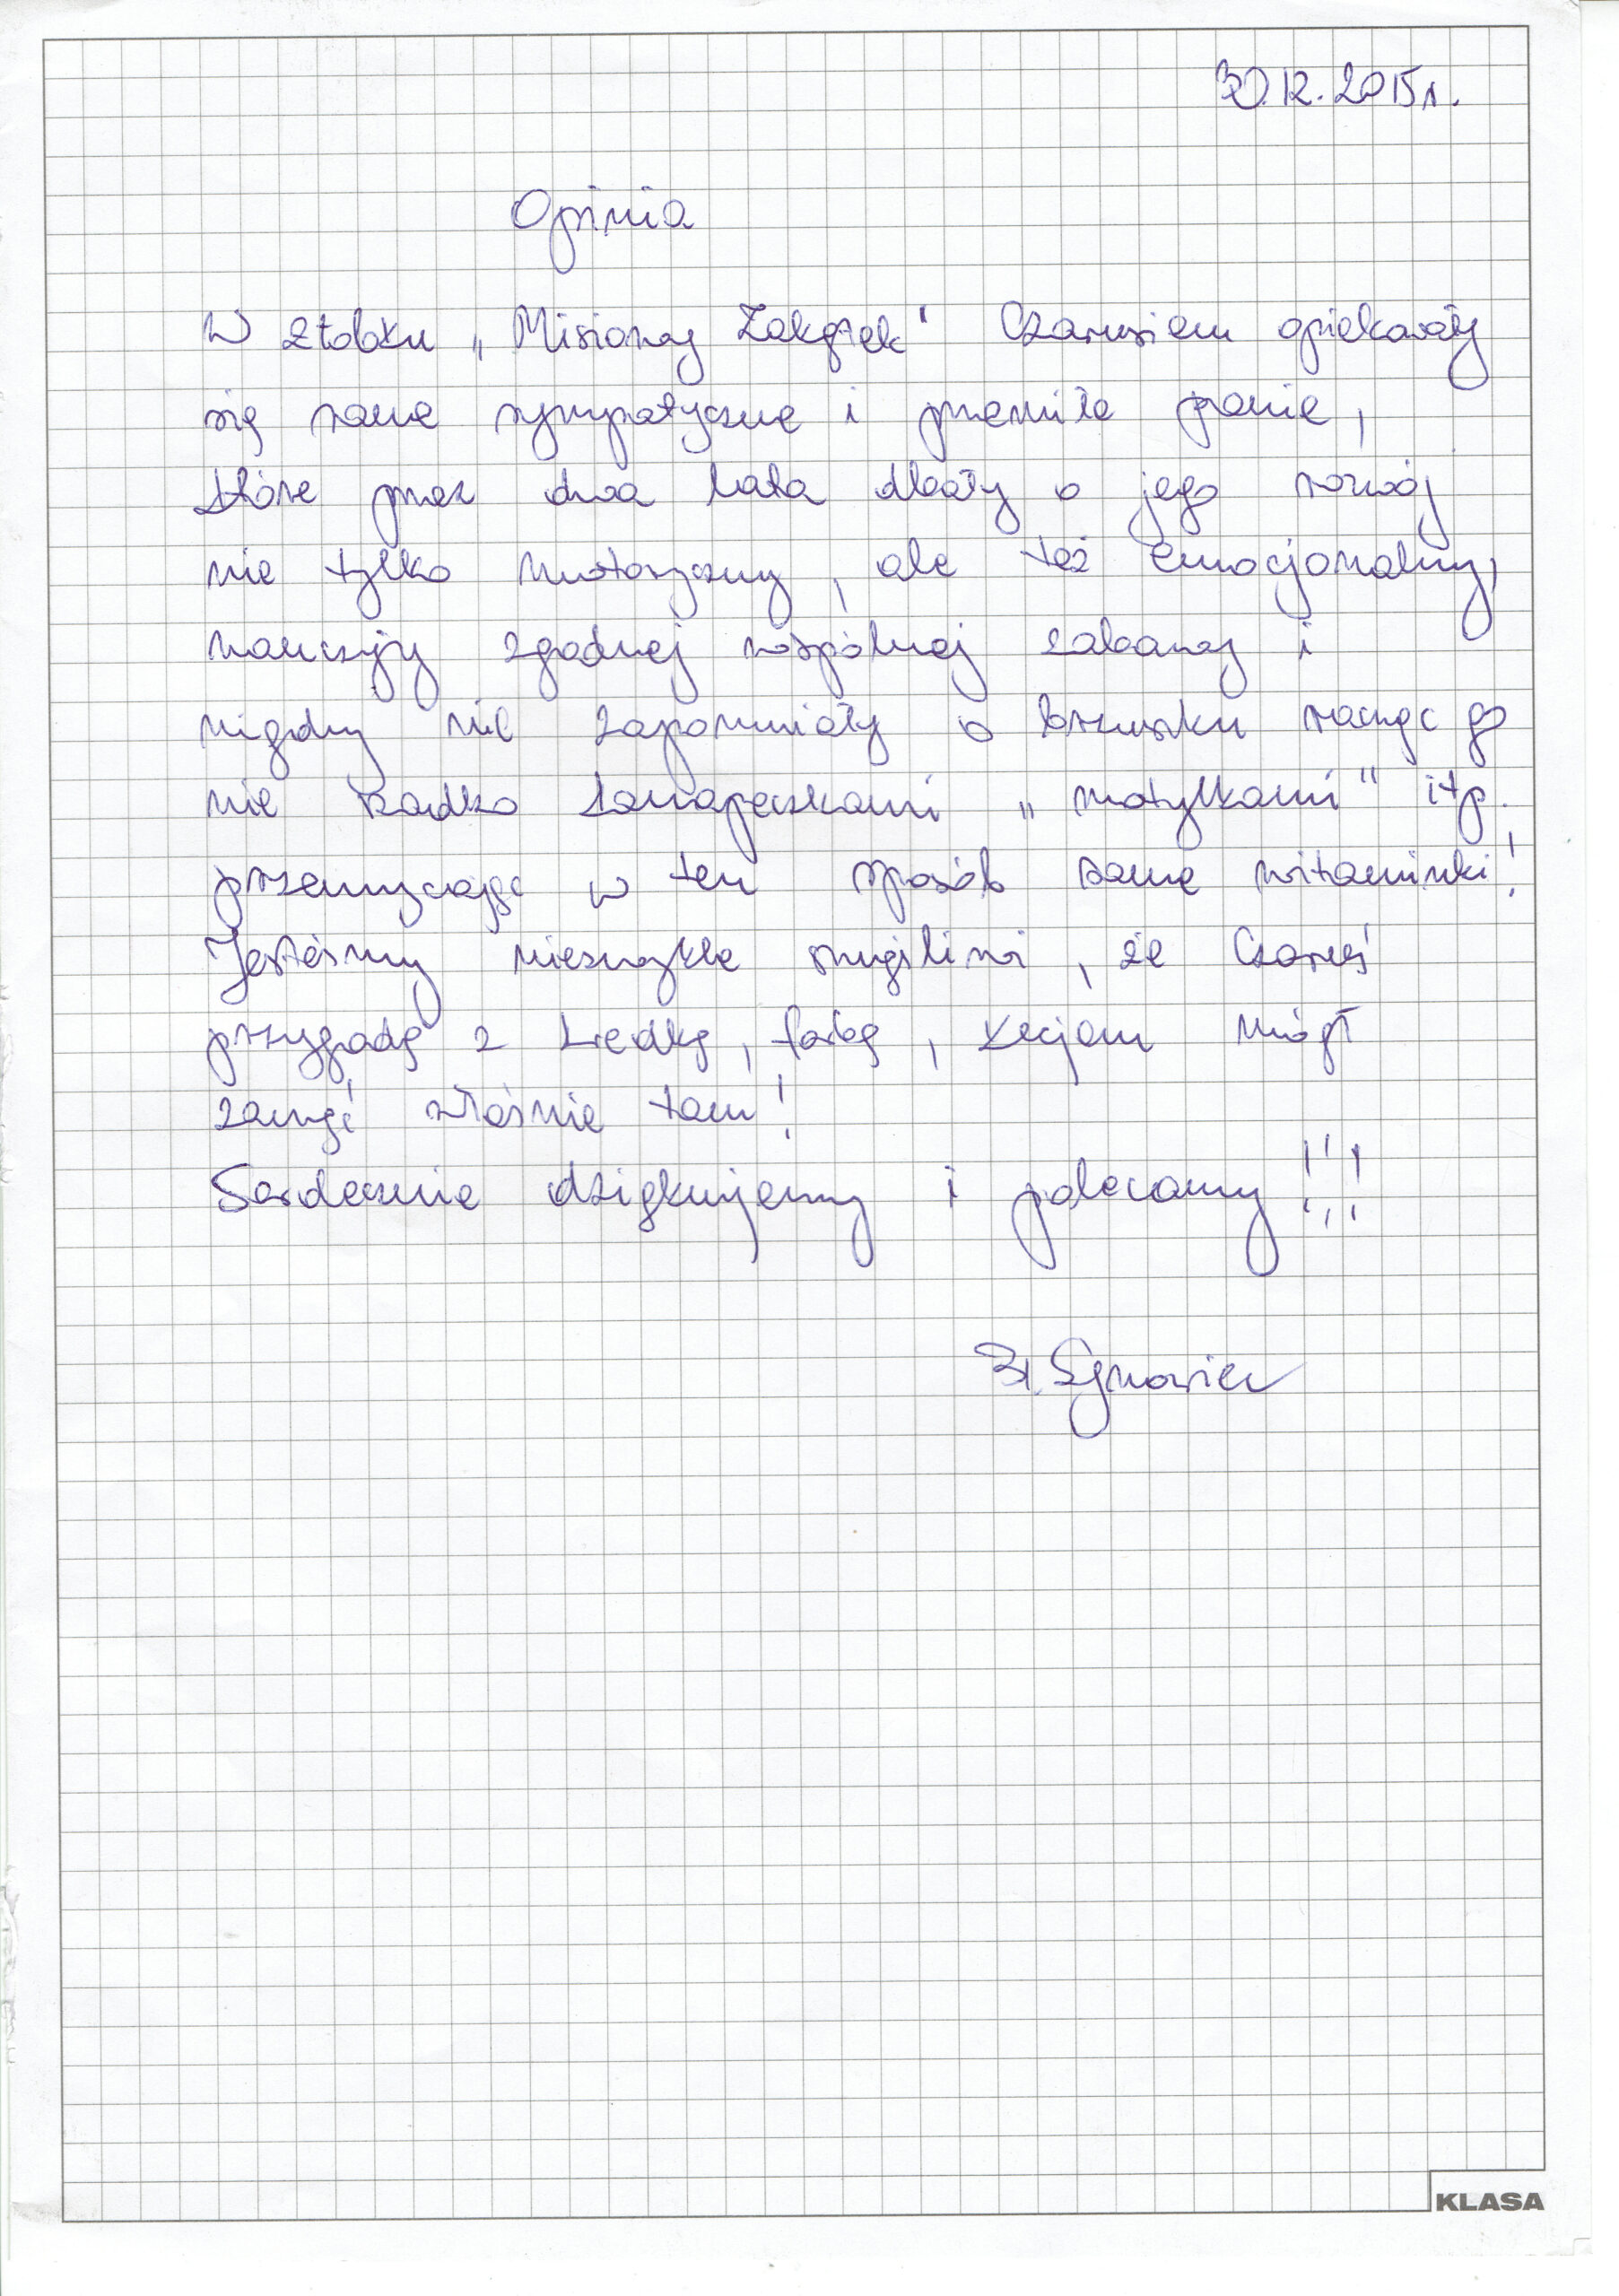 30.12.2015r.
Opinia
W żłobku „Misiowy Zakątek" Czarusiem opiekowały
się same sympatyczne i przemiłe panie,
które przez dwa lata dbały o jego rozwój
nie tylko motoryczny, ale też emocjonalny,
nauczyły zgodnej wspólnej zabawy i
nigdy nie zapomniały o brzuszku racząc go
nie rzadko kanapeczkami „motylkami" itp.
przemycając w ten sposób same witaminki!
Jesteśmy niezwykle szczęśliwi, że Czaruś
przygodę z kredką, farbą, klejem mógł
zacząć właśnie tam!
Serdecznie dziękujemy i polecamy!!!
KLASA